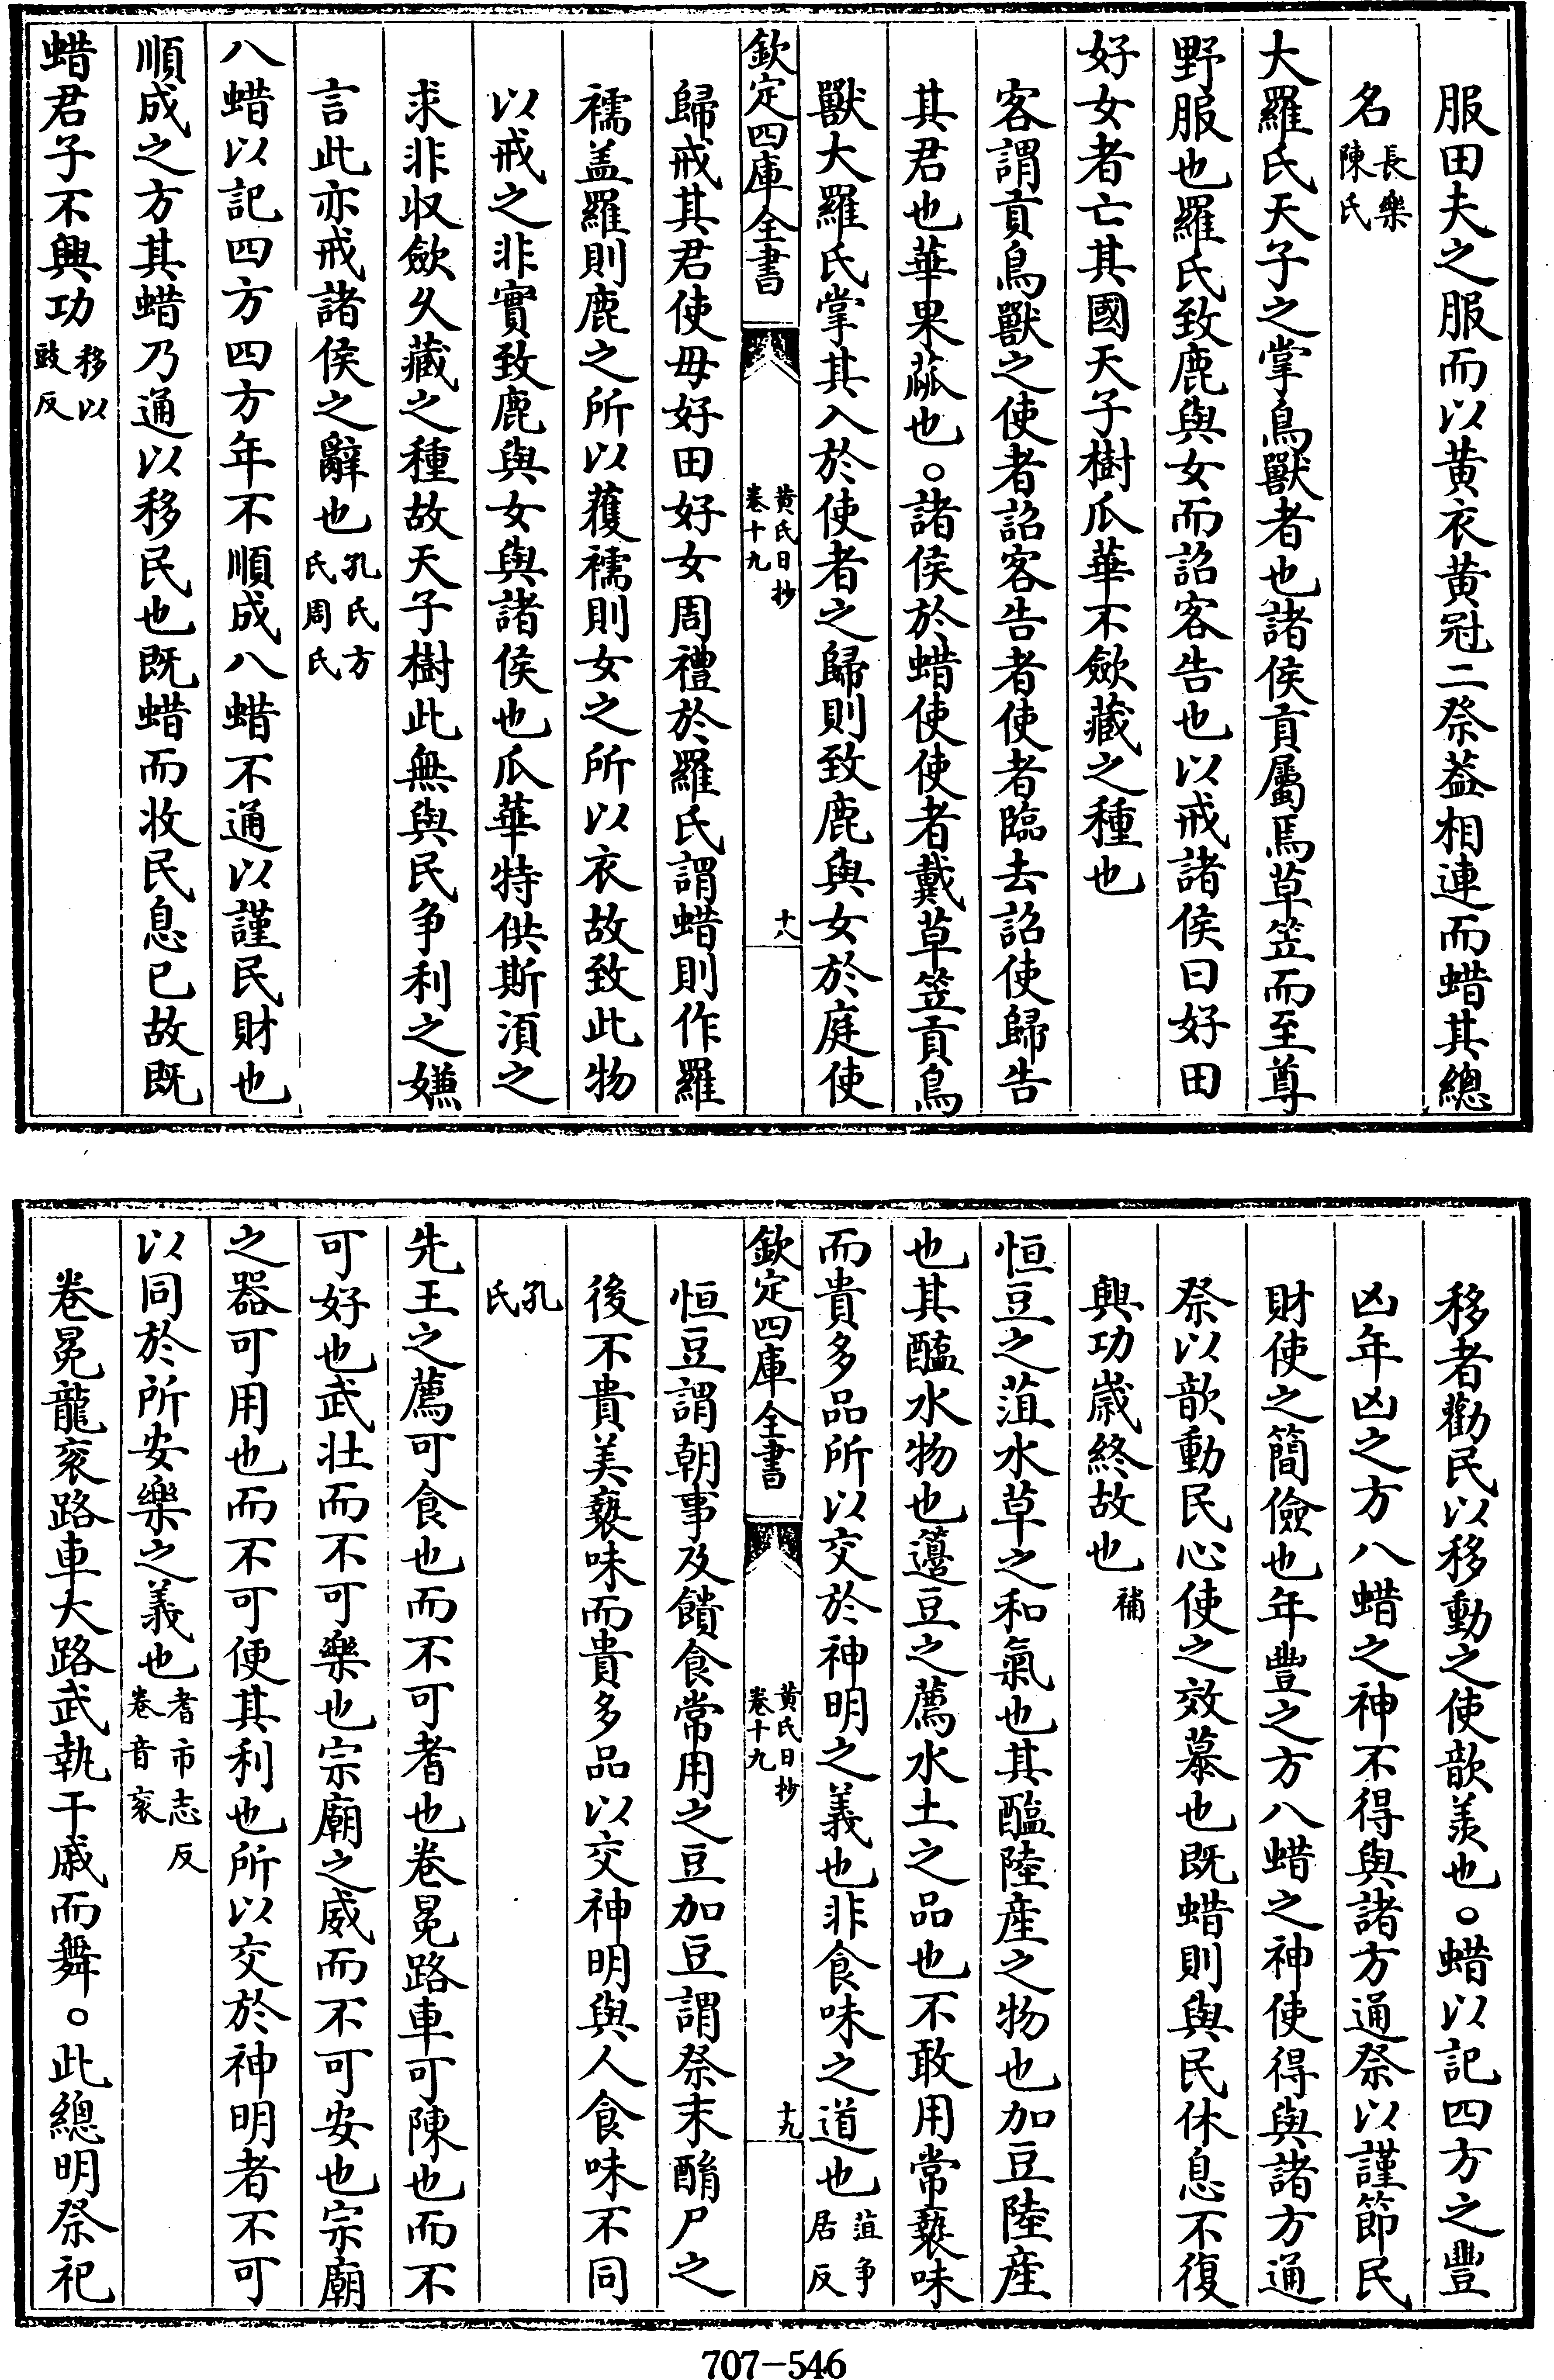 服田夫之服而以黄衣黄冠二祭葢相連而蜡其總
名長樂陳氏
大羅氏天子之掌鳥獸者也諸侯貢屬焉草笠而至尊
野服也羅氏致鹿與女而詔客告也以戒諸侯曰好田
好女者亡其國天子樹瓜華不歛藏之種也
客謂貢鳥獸之使者詔客告者使者臨去詔使歸告
其君也華果蓏也○諸侯於蜡使使者戴草笠貢鳥
獸大羅氏掌其入於使者之歸則致鹿與女於庭使
欽定四庫全書 黄氏日抄 卷十九 十八
歸戒其君使毋好田好女周禮於羅氏謂蜡則作羅
襦盖羅則鹿之所以獲襦則女之所以衣故致此物
以戒之非實致鹿與女與諸侯也瓜華特供斯湏之
求非収歛久藏之種故天子樹此無與民争利之嫌
言此亦戒諸侯之辭也孔氏方氏周氏
八蜡以記四方四方年不順成八蜡不通以謹民財也
順成之方其蜡乃通以移民也既蜡而收民息已故既
蜡君子不興功移以豉反
移者勸民以移動之使歆羡也○蜡以記四方之豐
凶年凶之方八蜡之神不得與諸方通祭以謹節民
財使之簡儉也年豐之方八蜡之神使得與諸方通
祭以歆動民心使之效慕也既蜡則與民休息不復
興功嵗終故也補
恒豆之菹水草之和氣也其醢陸産之物也加豆陸産
也其醢水物也籩豆之薦水土之品也不敢用常褻味
而貴多品所以交於神明之義也非食味之道也菹争居反
欽定四庫全書 黄氏日抄 卷十九 十九
恒豆謂朝事及饋食常用之豆加豆謂祭末酳尸之
後不貴美褻味而貴多品以交神明與人食味不同
孔氏
先王之薦可食也而不可耆也卷冕路車可陳也而不
可好也武壮而不可樂也宗廟之威而不可安也宗廟
之器可用也而不可便其利也所以交於神明者不可
以同於所安樂之義也耆市志反卷音衮
卷冕龍衮路車大路武執干戚而舞○此總明祭祀
707-546